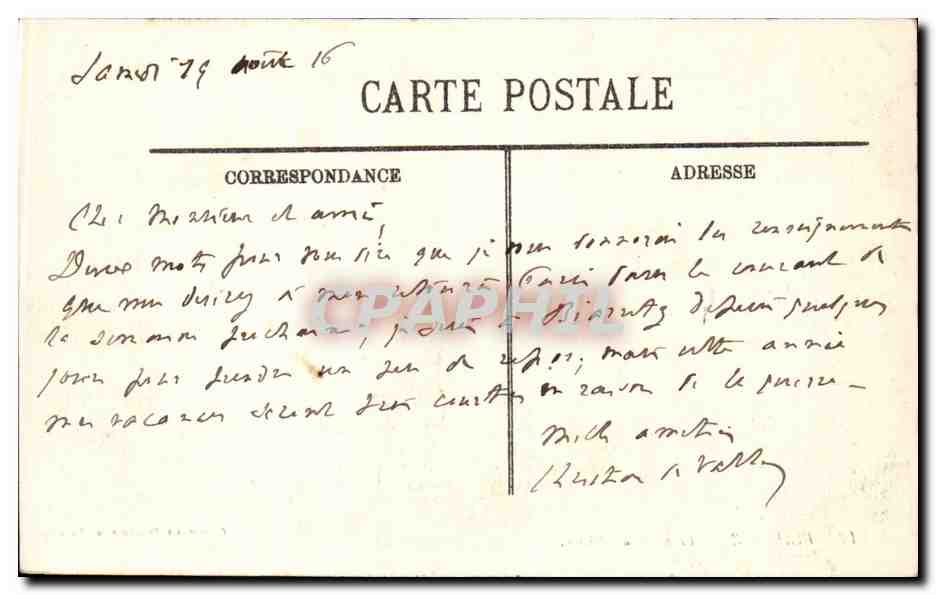 Samedi 19 août 16
CARTE POSTALE
CORRESPONDANCE
ADRESSE
Cher Monsieur et ami!
Deux mots pour vous dire que je vous donnerai les renseignements
que vous désirez à mon retour à Paris dans le courant de
la semaine prochaine; je suis à Biarritz depuis quelques
jours pour prendre un peu de repos; mais cette année
mes vacances seront très courtes en raison de la guerre –
Mille amitiés
Christian de
CPAPHIL